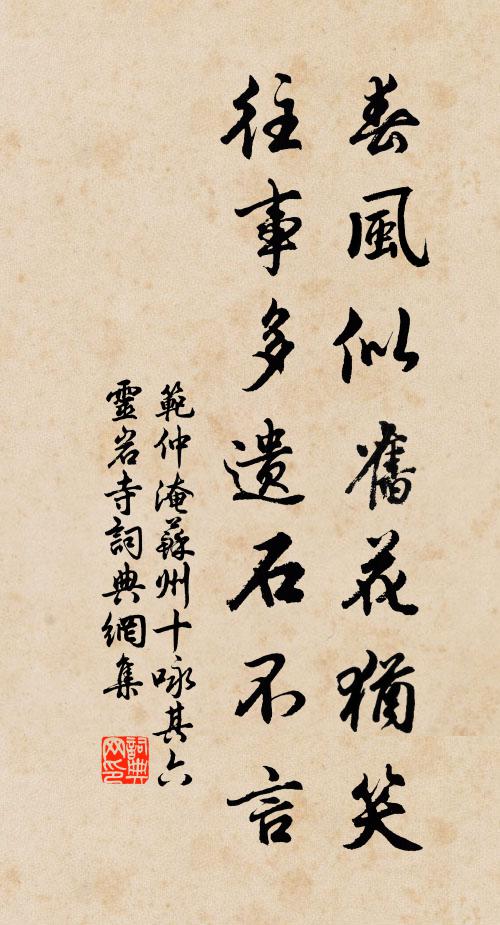 春風似舊花猶笑
往事多遺石不言
範仲淹蘇州十咏其六
靈岩寺詞典網集
詞典网印